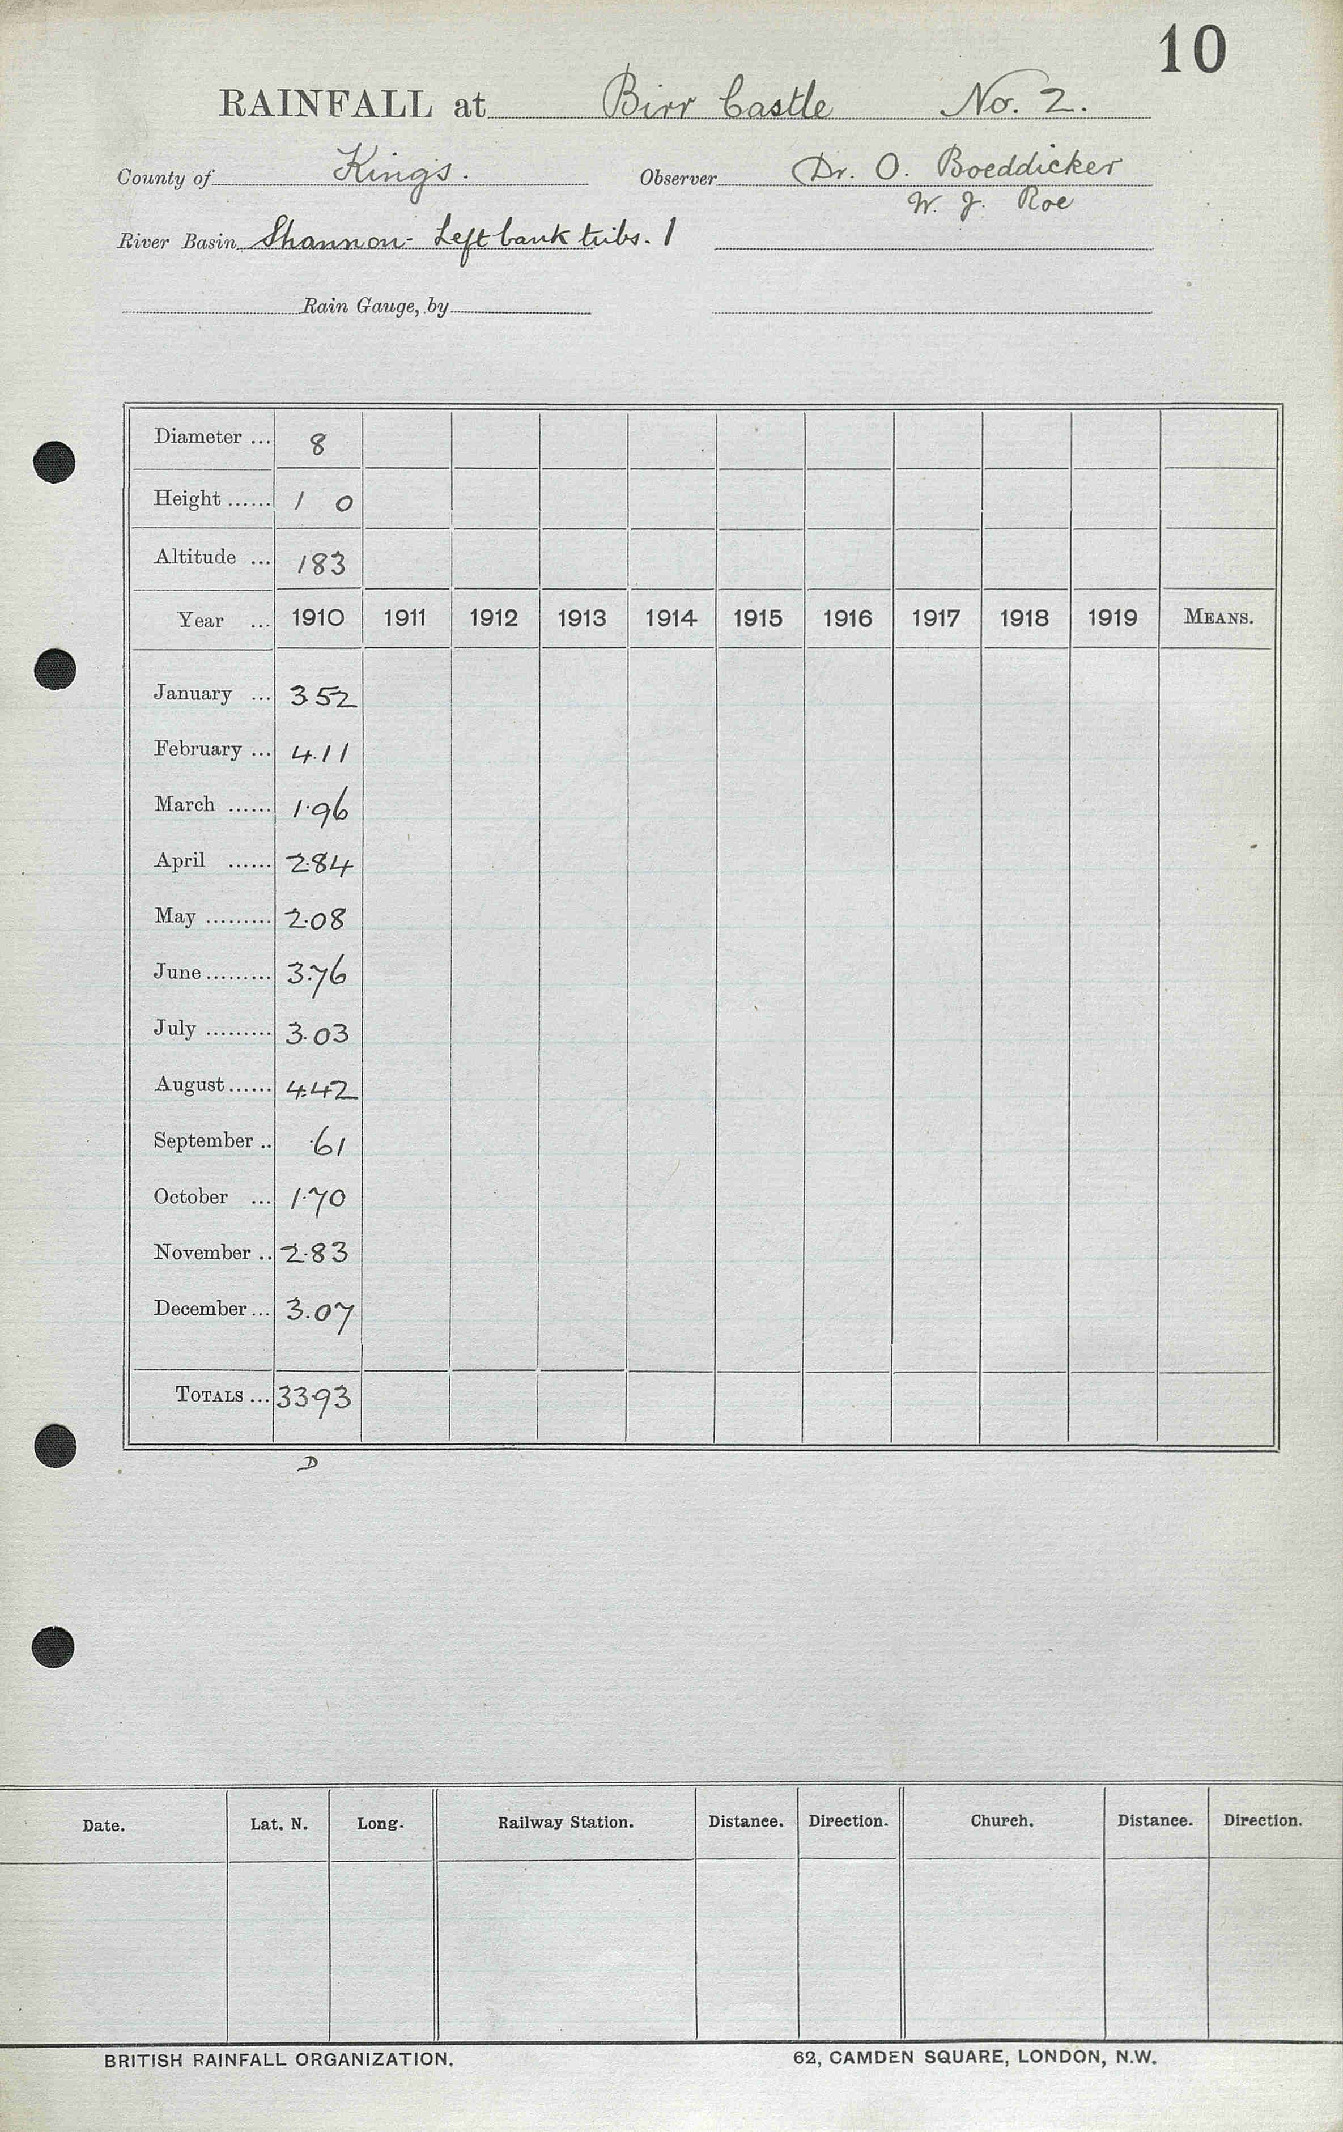 10
RAINFALL at Birr Castle No. 2.
County of Kings. Observer Dr. O. Boeddicker
W. J. Roe
River Basin Shannon - Left bank tribs. 1
Rain Gauge, by
Diameter ... 8
Height ...... 1 0
Altitude ... 183
Year ... 1910 1911 1912 1913 1914 1915 1916 1917 1918 1919 MEANS.
January ... 3.52
February ... 4.11
March ...... 1.96
April ...... 2.84
May ......... 2.08
June ......... 3.76
July ......... 3.03
August ...... 4.42
September .. .61
October ... 1.70
November .. 2.83
December ... 3.07
TOTALS ... 33.93
D
Date. Lat. N. Long. Railway Station. Distance. Direction. Church. Distance. Direction.
BRITISH RAINFALL ORGANIZATION. 62, CAMDEN SQUARE, LONDON, N.W.